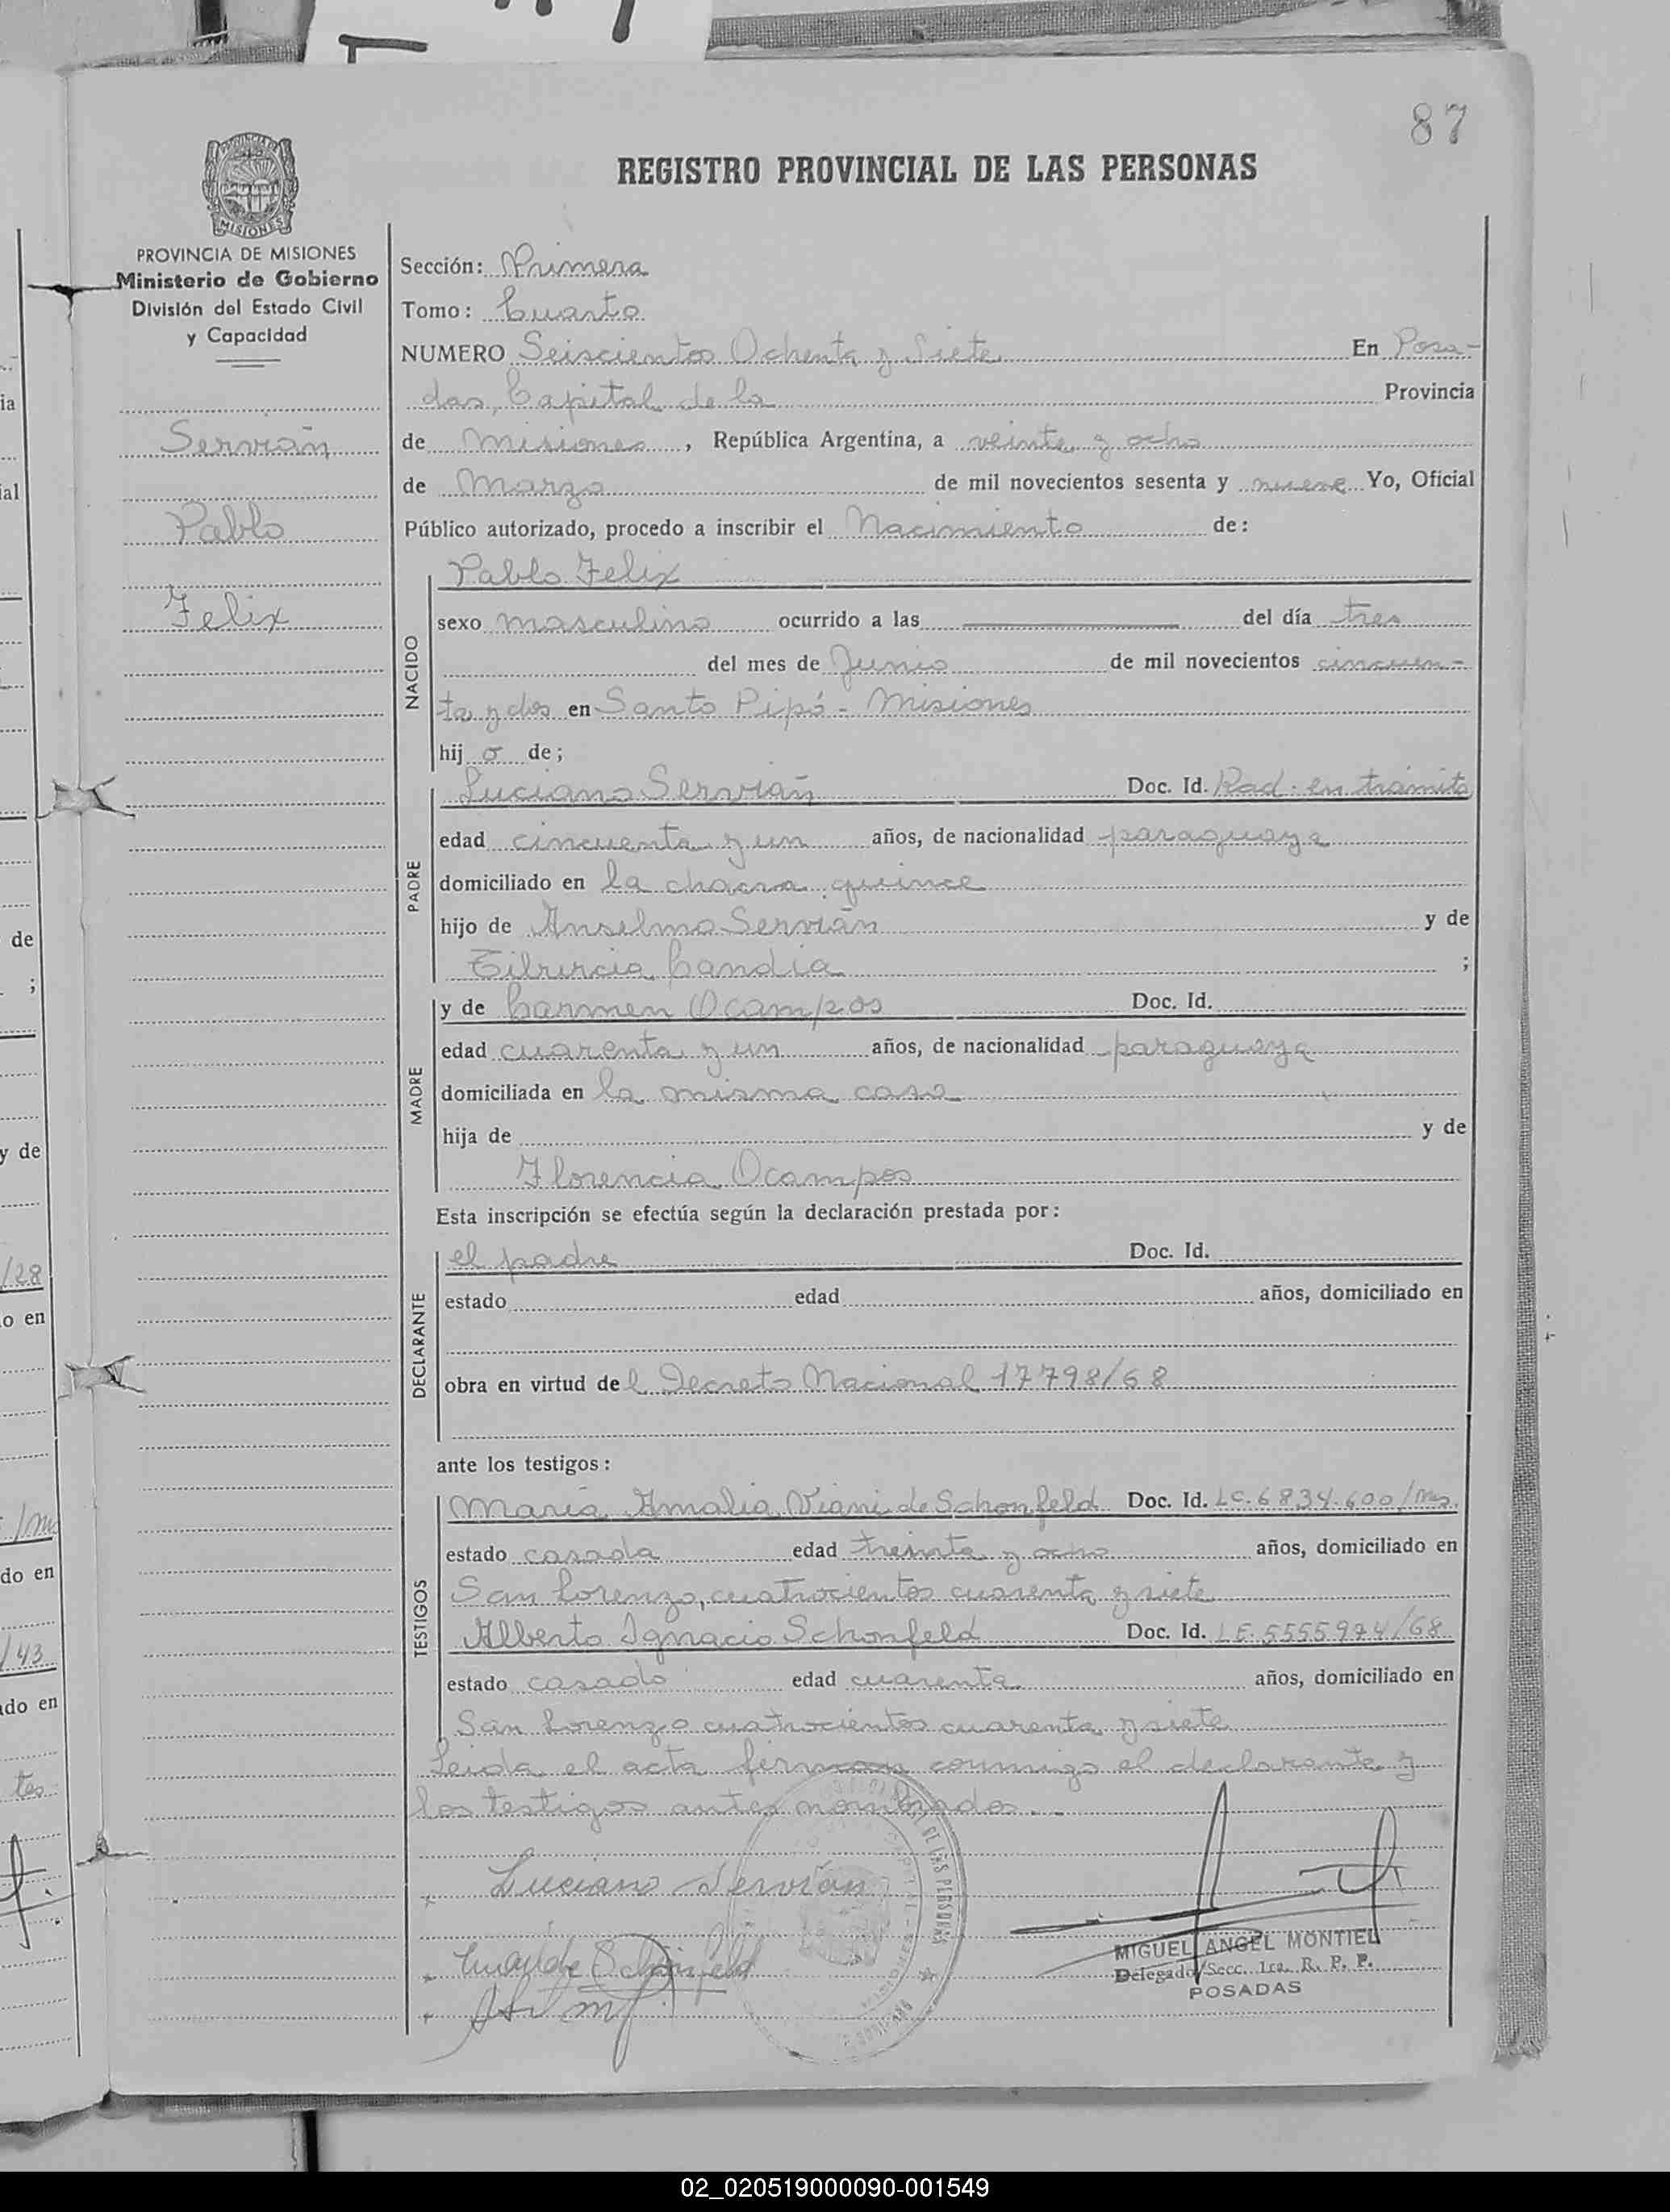 87
REGISTRO PROVINCIAL DE LAS PERSONAS
PROVINCIA DE MISIONES
MISIONES
PROVINCIA DE MISIONES
Ministerio de Gobierno
División del Estado Civil
y Capacidad
Servián
Pablo
Felix
Sección: Primera
Tomo: Cuarto
NUMERO Seiscientos Ochenta y Siete En Posa-
das, Capital de la Provincia
de Misiones, República Argentina, a veinte y ocho
de Marzo de mil novecientos sesenta y nueve Yo, Oficial
Público autorizado, procedo a inscribir el Nacimiento de:
NACIDO
Pablo Felix
sexo masculino ocurrido a las del día tres
del mes de Junio de mil novecientos cincuen-
ta y dos en Santo Pipó - Misiones
hij o de;
PADRE
Luciano Servián Doc. Id. Rad. en trámite
edad cincuenta y un años, de nacionalidad paraguaya
domiciliado en la chacra quince
hijo de Anselmo Servián y de
Candia ;
MADRE
y de Carmen Ocampos Doc. Id.
edad cuarenta y un años, de nacionalidad paraguaya
domiciliada en la misma casa
hija de y de
Florencia Ocampos
Esta inscripción se efectúa según la declaración prestada por:
DECLARANTE
el padre Doc. Id.
estado edad años, domiciliado en
obra en virtud del Decreto Nacional 17798/68
ante los testigos:
TESTIGOS
María Amalia Viani de Schonfeld Doc. Id. LC. 6834.600/Ms.
estado casada edad treinta y ocho años, domiciliado en
San Lorenzo, cuatrocientos cuarenta y siete
Alberto Ignacio Schonfeld Doc. Id. LE. 5555974/68
estado casado edad cuarenta años, domiciliado en
San Lorenzo cuatrocientos cuarenta y siete
Leida el acta firman conmigo el declarante y
los testigos antes nombrados.-
Luciano Servián
de Schonfeld
MIGUEL ANGEL MONTIEL
Delegado Secc. 1ra. R. P. P.
POSADAS
02_020519000090-001549